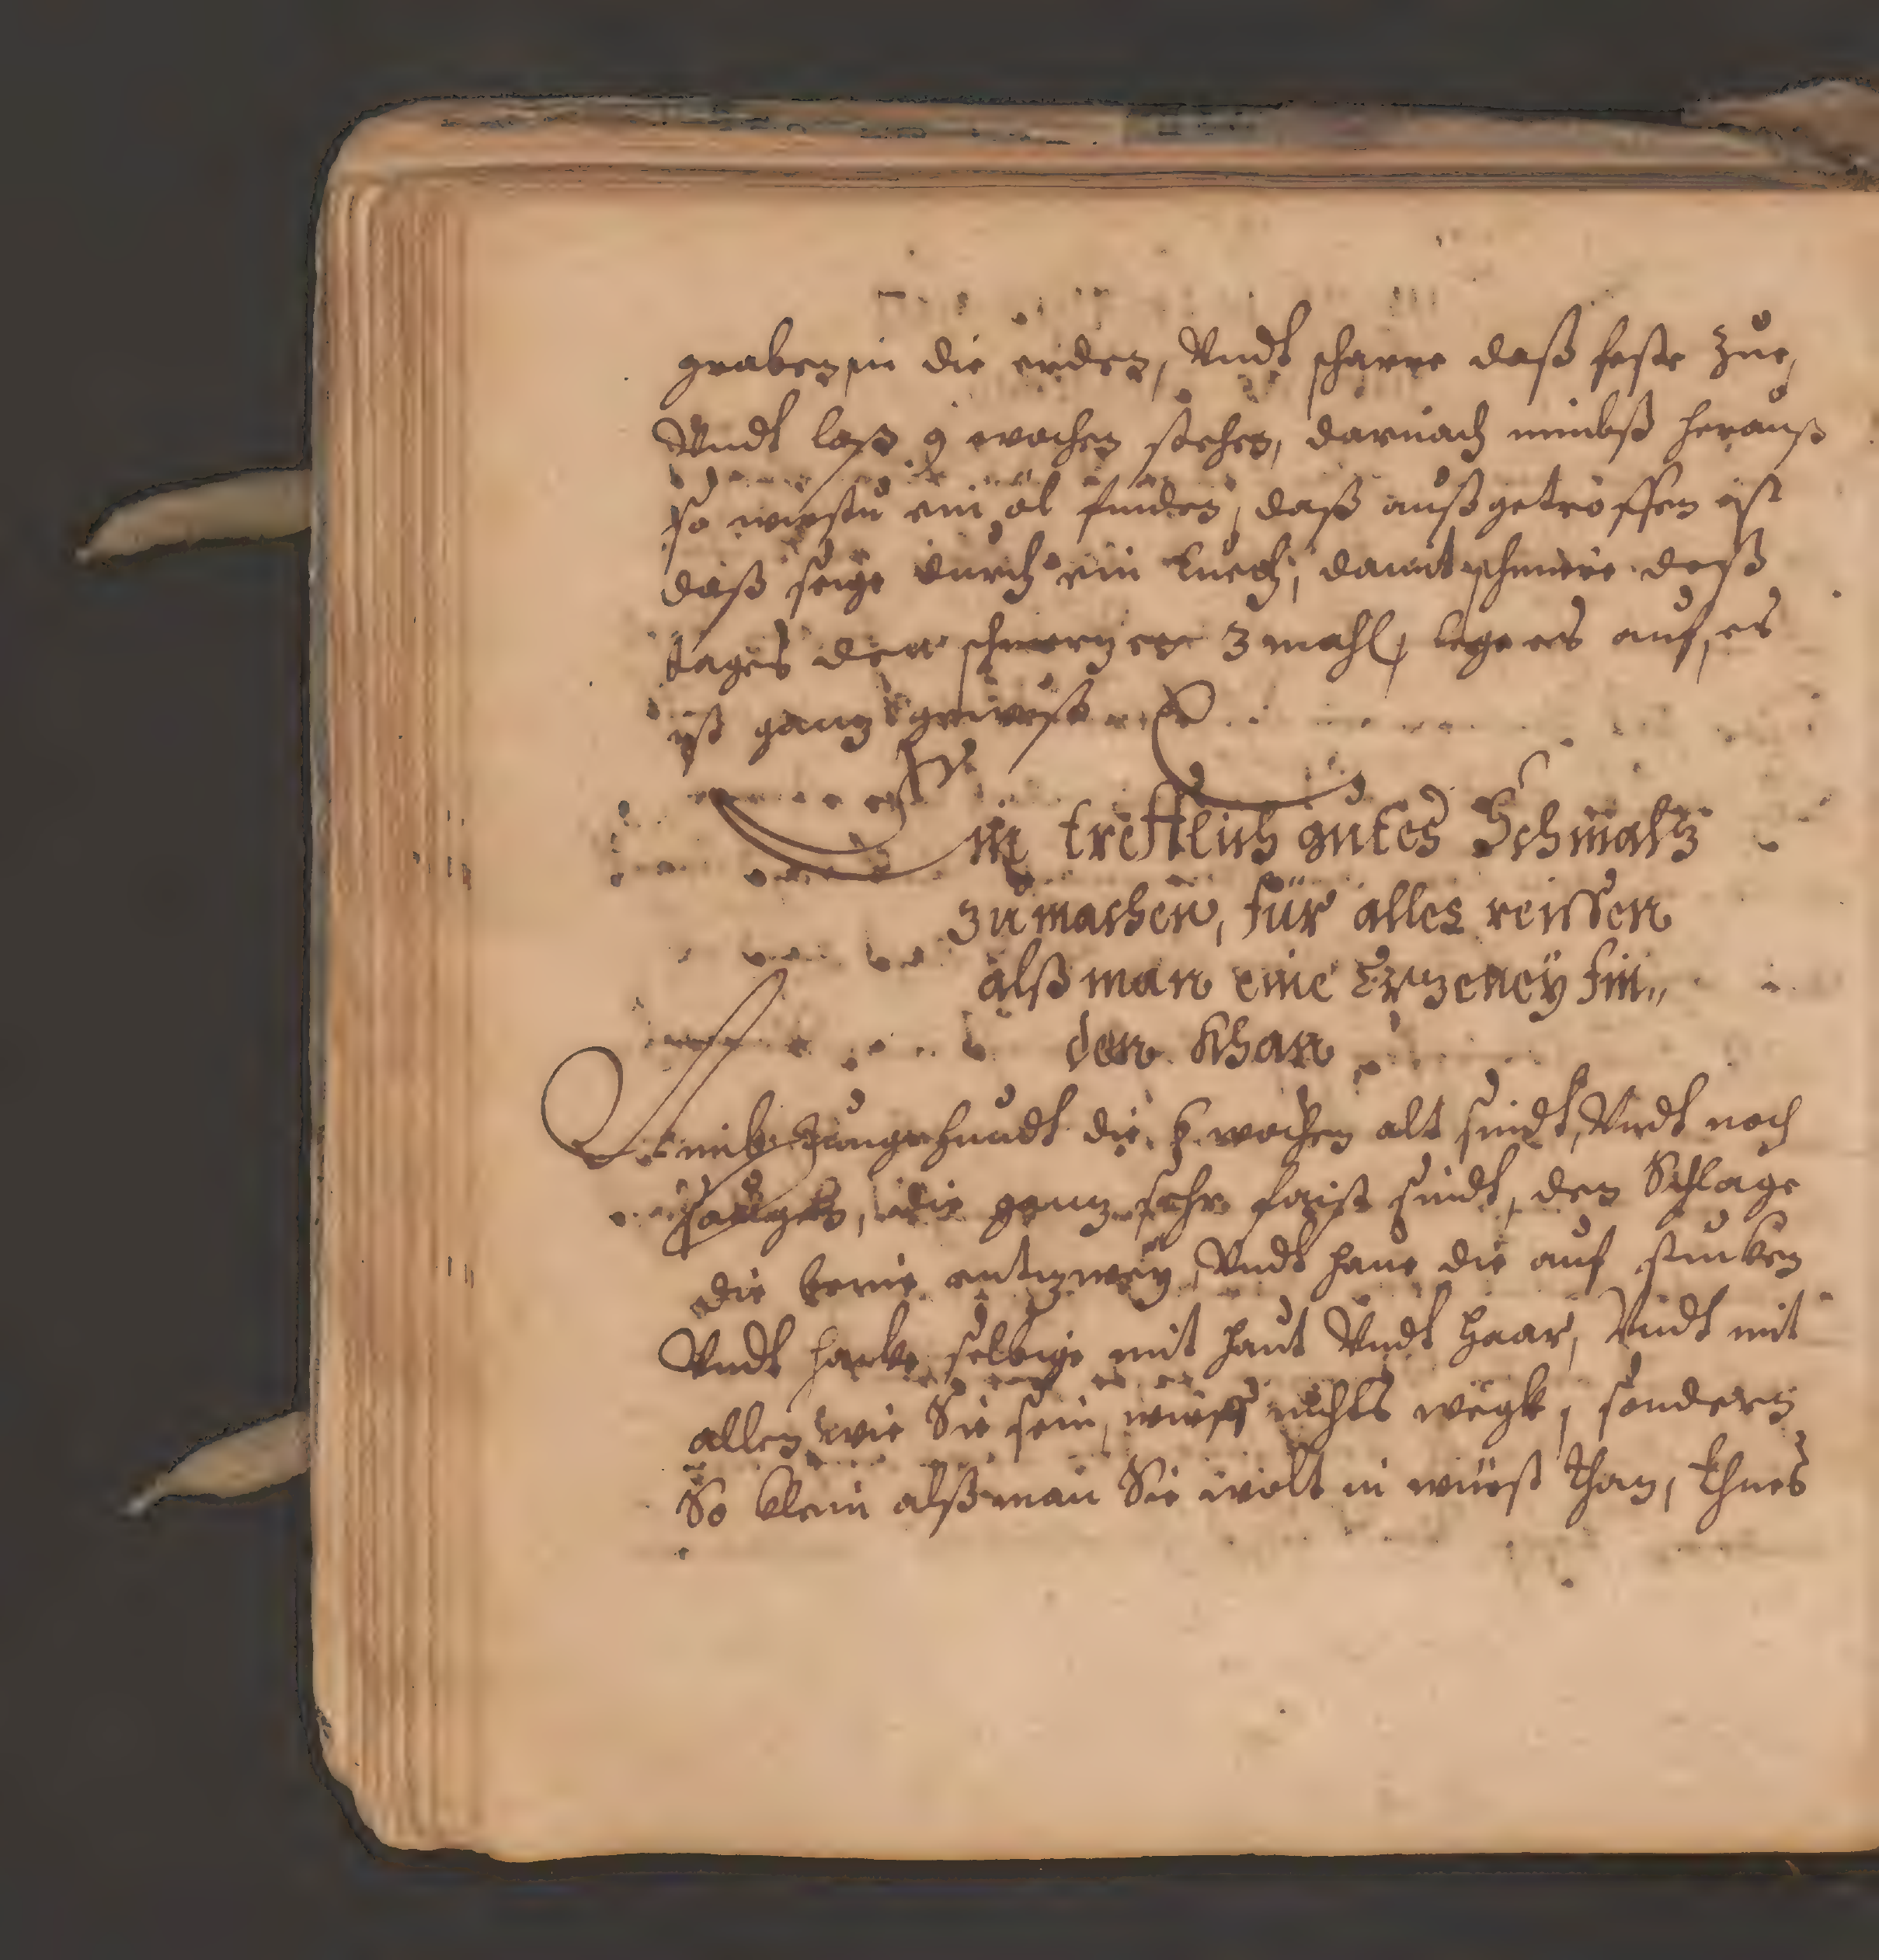 graben in die erden, Vndt scharre daß feste zue,
Vndt laß 9 wochen stehen, darnach nimbß herauß
so wirstu ein öl finden, daß außgetroffen ist
daß seige durch ein tuech, damit schmiere deß
tages den schmertzen 3 mahl, lege es auf, es
ist gantz gewieß
Ein trefflich gutes Schmaltz
zu machen, für alles reissen
alß man eine Ertzeney fin„
den khan
Nimb Junge hundt die 6 wochen alt sindt, Vndt noch
saugen, die gantz sehr faist sindt, den Schlage
die beine entzwey, Vndt haue die auf stucken
Vndt hacke selbige mit haut Vndt Haar, Vndt mit
allen wie Sie sein, würff nichts wegk, sondern
So klein alß man Sie wolt in würst than, thues